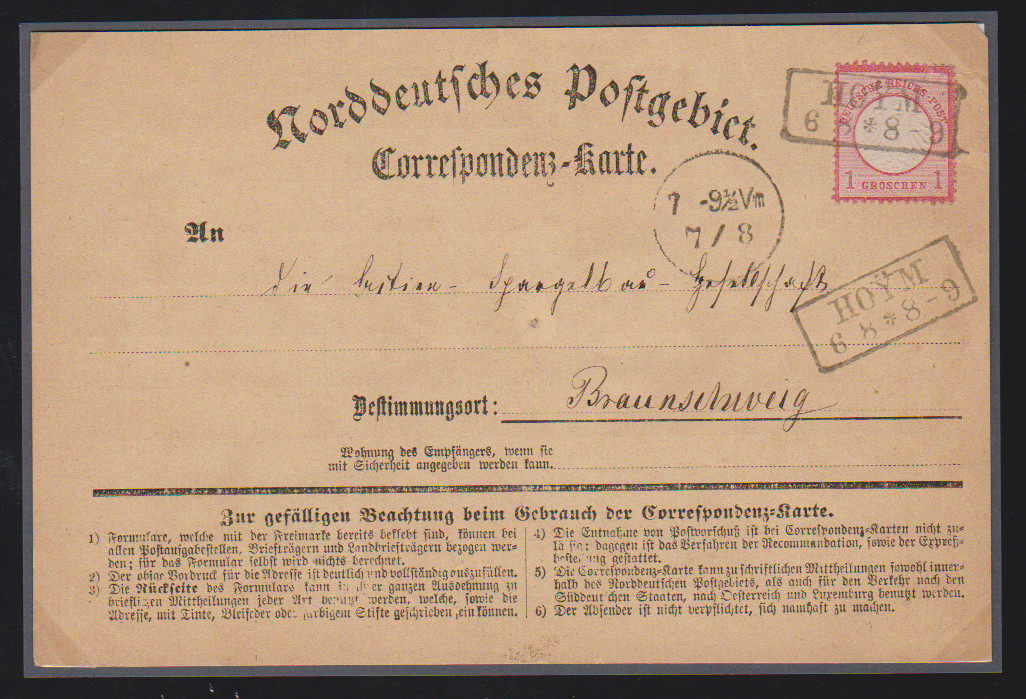 Norddeutsches Postgebiet.
Correspondenz-Karte.
DEUTSCHE REICHS-POST
1 GROSCHEN 1
HOŸM
6 8 * 8 - 9
7 -9½Vm
7 / 8
An
die Actien-Spargelbau-Gesellschaft
HOŸM
6 8 * 8 - 9
Bestimmungsort: Braunschweig
Wohnung des Empfängers, wenn sie
mit Sicherheit angegeben werden kann.
Zur gefälligen Beachtung beim Gebrauch der Correspondenz-Karte.
1) Formulare, welche mit der Freimarke bereits beklebt sind, können bei
allen Postausgabestellen, Briefträgern und Landbriefträgern bezogen wer-
den; für das Formular selbst wird nichts berechnet.
2) Der obige Vordruck für die Adresse ist deutlich und vollständig auszufüllen.
3) Die Rückseite des Formulars kann in ihrer ganzen Ausdehnung zu
brieflichen Mittheilungen jeder Art benutzt werden, welche, sowie die
Adresse, mit Tinte, Bleifeder oder farbigem Stifte geschrieben sein können.
4) Die Entnahme von Postvorschuß ist bei Correspondenz-Karten nicht zu-
lässig; dagegen ist das Verfahren der Recommandation, sowie der Expreß-
bestellung gestattet.
5) Die Correspondenz-Karte kann zu schriftlichen Mittheilungen sowohl inner-
halb des Norddeutschen Postgebiets, als auch für den Verkehr nach den
Süddeutschen Staaten, nach Oesterreich und Luxemburg benutzt werden.
6) Der Absender ist nicht verpflichtet, sich namhaft zu machen.